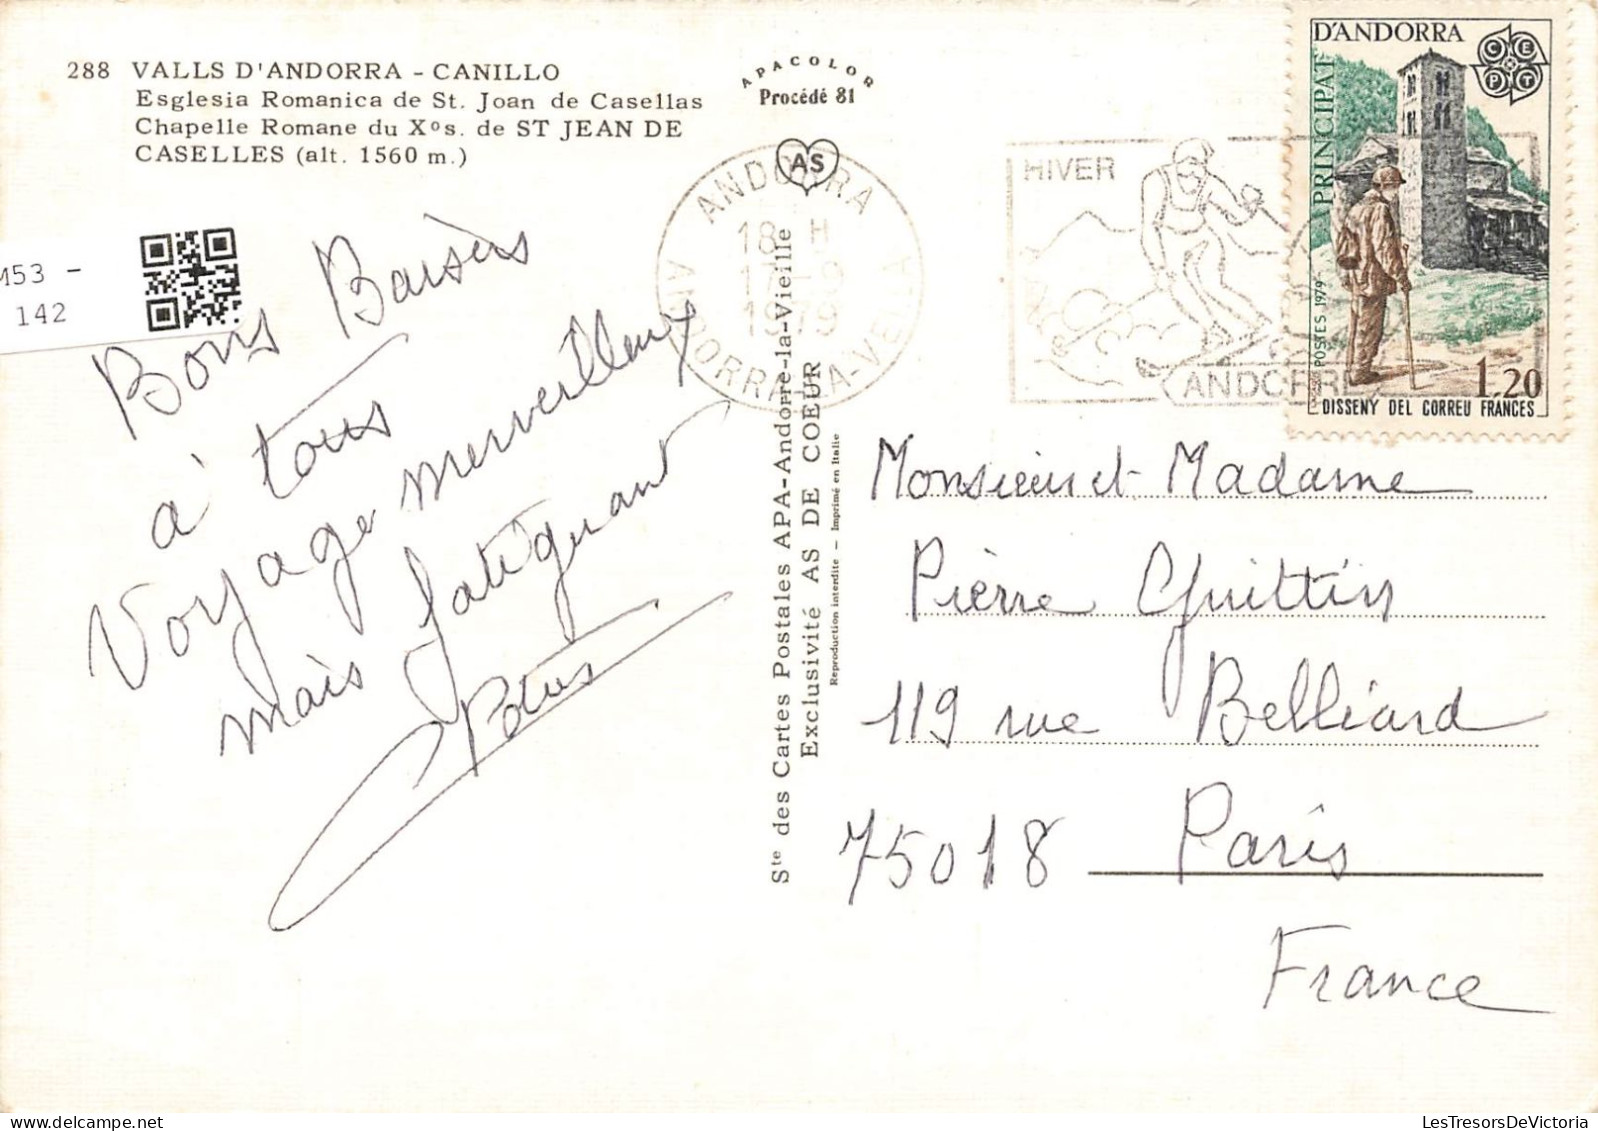 288 VALLS D'ANDORRA - CANILLO
Esglesia Romanica de St. Joan de Casellas
Chapelle Romane du Xºs. de ST JEAN DE
CASELLES (alt. 1560 m.)
M53 -
142
APACOLOR
Procédé 81
AS
ANDORRA
18 H
17-9
1979
ANDORRA-LA-VELLA
HIVER
ANDORRE
PRINCIPAT
D'ANDORRA
CEPT
POSTES 1979
1,20
DISSENY DEL CORREU FRANCES
Bons Baisers
à tous
Voyage merveilleux
mais fatiguant
Ste des Cartes Postales APA-Andorre-la-Vieille
Exclusivité AS DE COEUR
Reproduction interdite - Imprimé en Italie
Monsieur et Madame
Pierre Quittin
119 rue Belliard
75018 Paris
France
LesTresorsDeVictoria